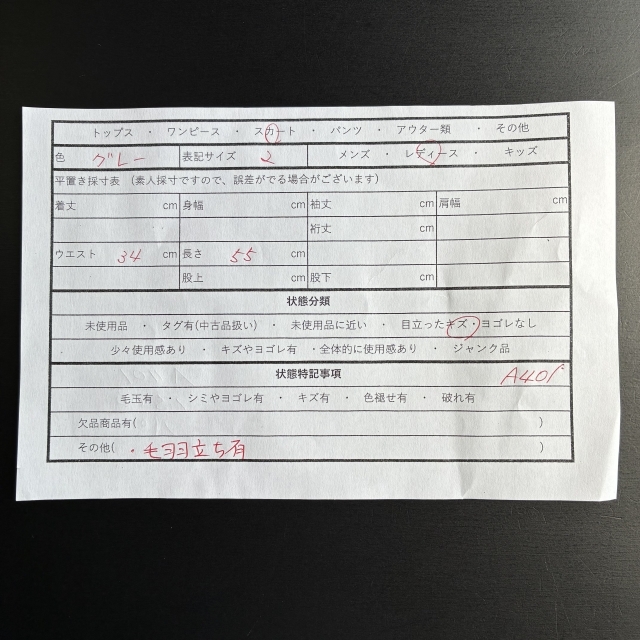 トップス ・ ワンピース ・ スカート ・ パンツ ・ アウター類 ・ その他
色 グレー 表記サイズ 2 メンズ ・ レディース ・ キッズ
平置き採寸表 (素人採寸ですので、誤差がでる場合がございます)
着丈 cm 身幅 cm 袖丈 cm 肩幅 cm
裄丈 cm
ウエスト 34 cm 長さ 55 cm
股上 cm 股下 cm
状態分類
未使用品 ・ タグ有(中古品扱い) ・ 未使用品に近い ・ 目立ったキズ・ヨゴレなし
・ 少々使用感あり ・ キズやヨゴレ有 ・全体的に使用感あり ・ ジャンク品
状態特記事項 A401
毛玉有 ・ シミやヨゴレ有 ・ キズ有 ・ 色褪せ有 ・ 破れ有
欠品商品有( )
その他( ・毛羽立ち有 )